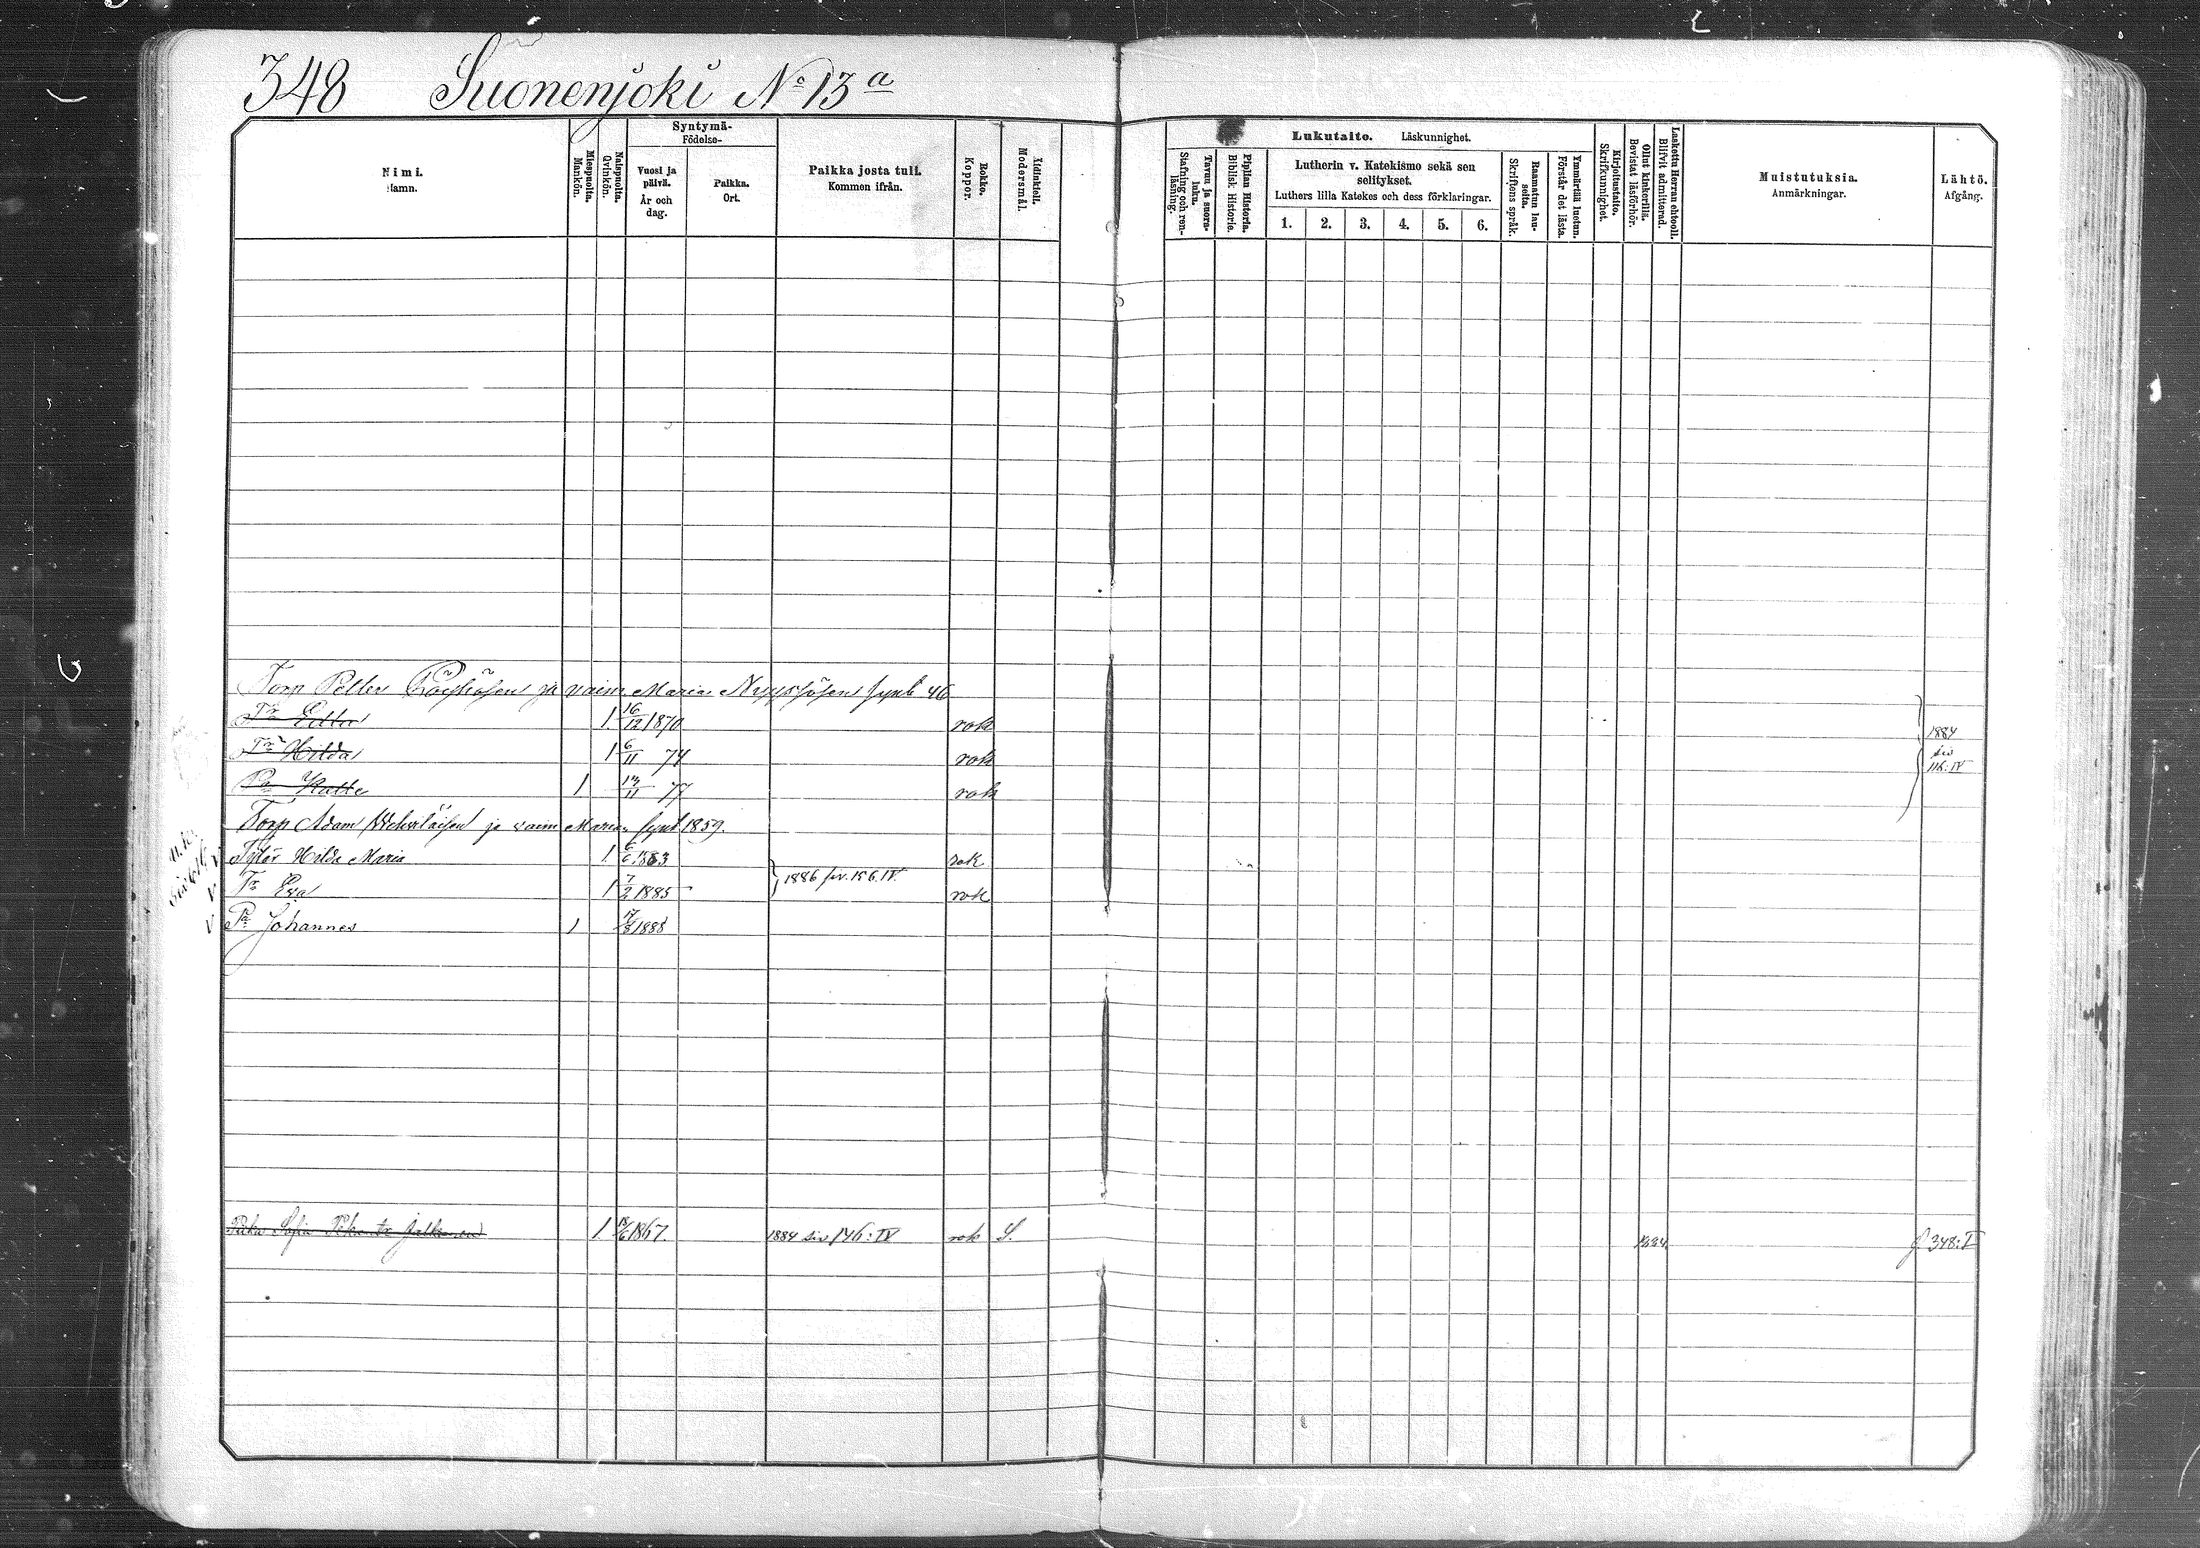 348 Suonenjoki No 13 a
Nimi.
Namn.
Miespuolta.
Mankön.
Naispuolta.
Qvinkön.
Syntymä-
Födelse-
Vuosi ja päivä.
År och dag.
Paikka.
Ort.
Paikka josta tuli.
Kommen ifrån.
Rokko.
Koppor.
Äidinkieli.
Modersmål.
Lukutaito. Läskunnighet.
Tavau ja suora-luku.
Stafning och ren-läsning.
Piplian Historia.
Biblisk Historie.
Lutherin v. Katekismo sekä sen
selitykset.
Luthers lilla Katekes och dess förklaringar.
1. 2. 3. 4. 5. 6.
Raamatun lau-seita.
Skriftens språk.
Ymmärtää luetun.
Förstår det lästa.
Kirjoitustaito.
Skrifkunnighet.
Ollut kinkerillä.
Bevistat läsförhör.
Laskettu Herran ehtooll.
Blifvit admitterad.
Muistutuksia.
Anmärkningar.
Lähtö.
Afgång.
Torp Petter ja vaim Maria synt 46
Tr Edla 1. 16/12 1870 rok
Tr Hilda 1 6/11 74 rok
Pa Kalle 1 13/11 77 rok
1884
siv
116:IV
Torp Adam ja vaim Maria synt 1859.
Tytär Hilda Maria 1 6/6 1883 rok
1886 siv. 156. IV.
V Tr Eva 1 7/2 1885 rok
V Pa Johannes 1 17/3 1888
Piika Sofia 1. 18/6 1867. 1884 siv 146: IV rok S. 1884. 348: V